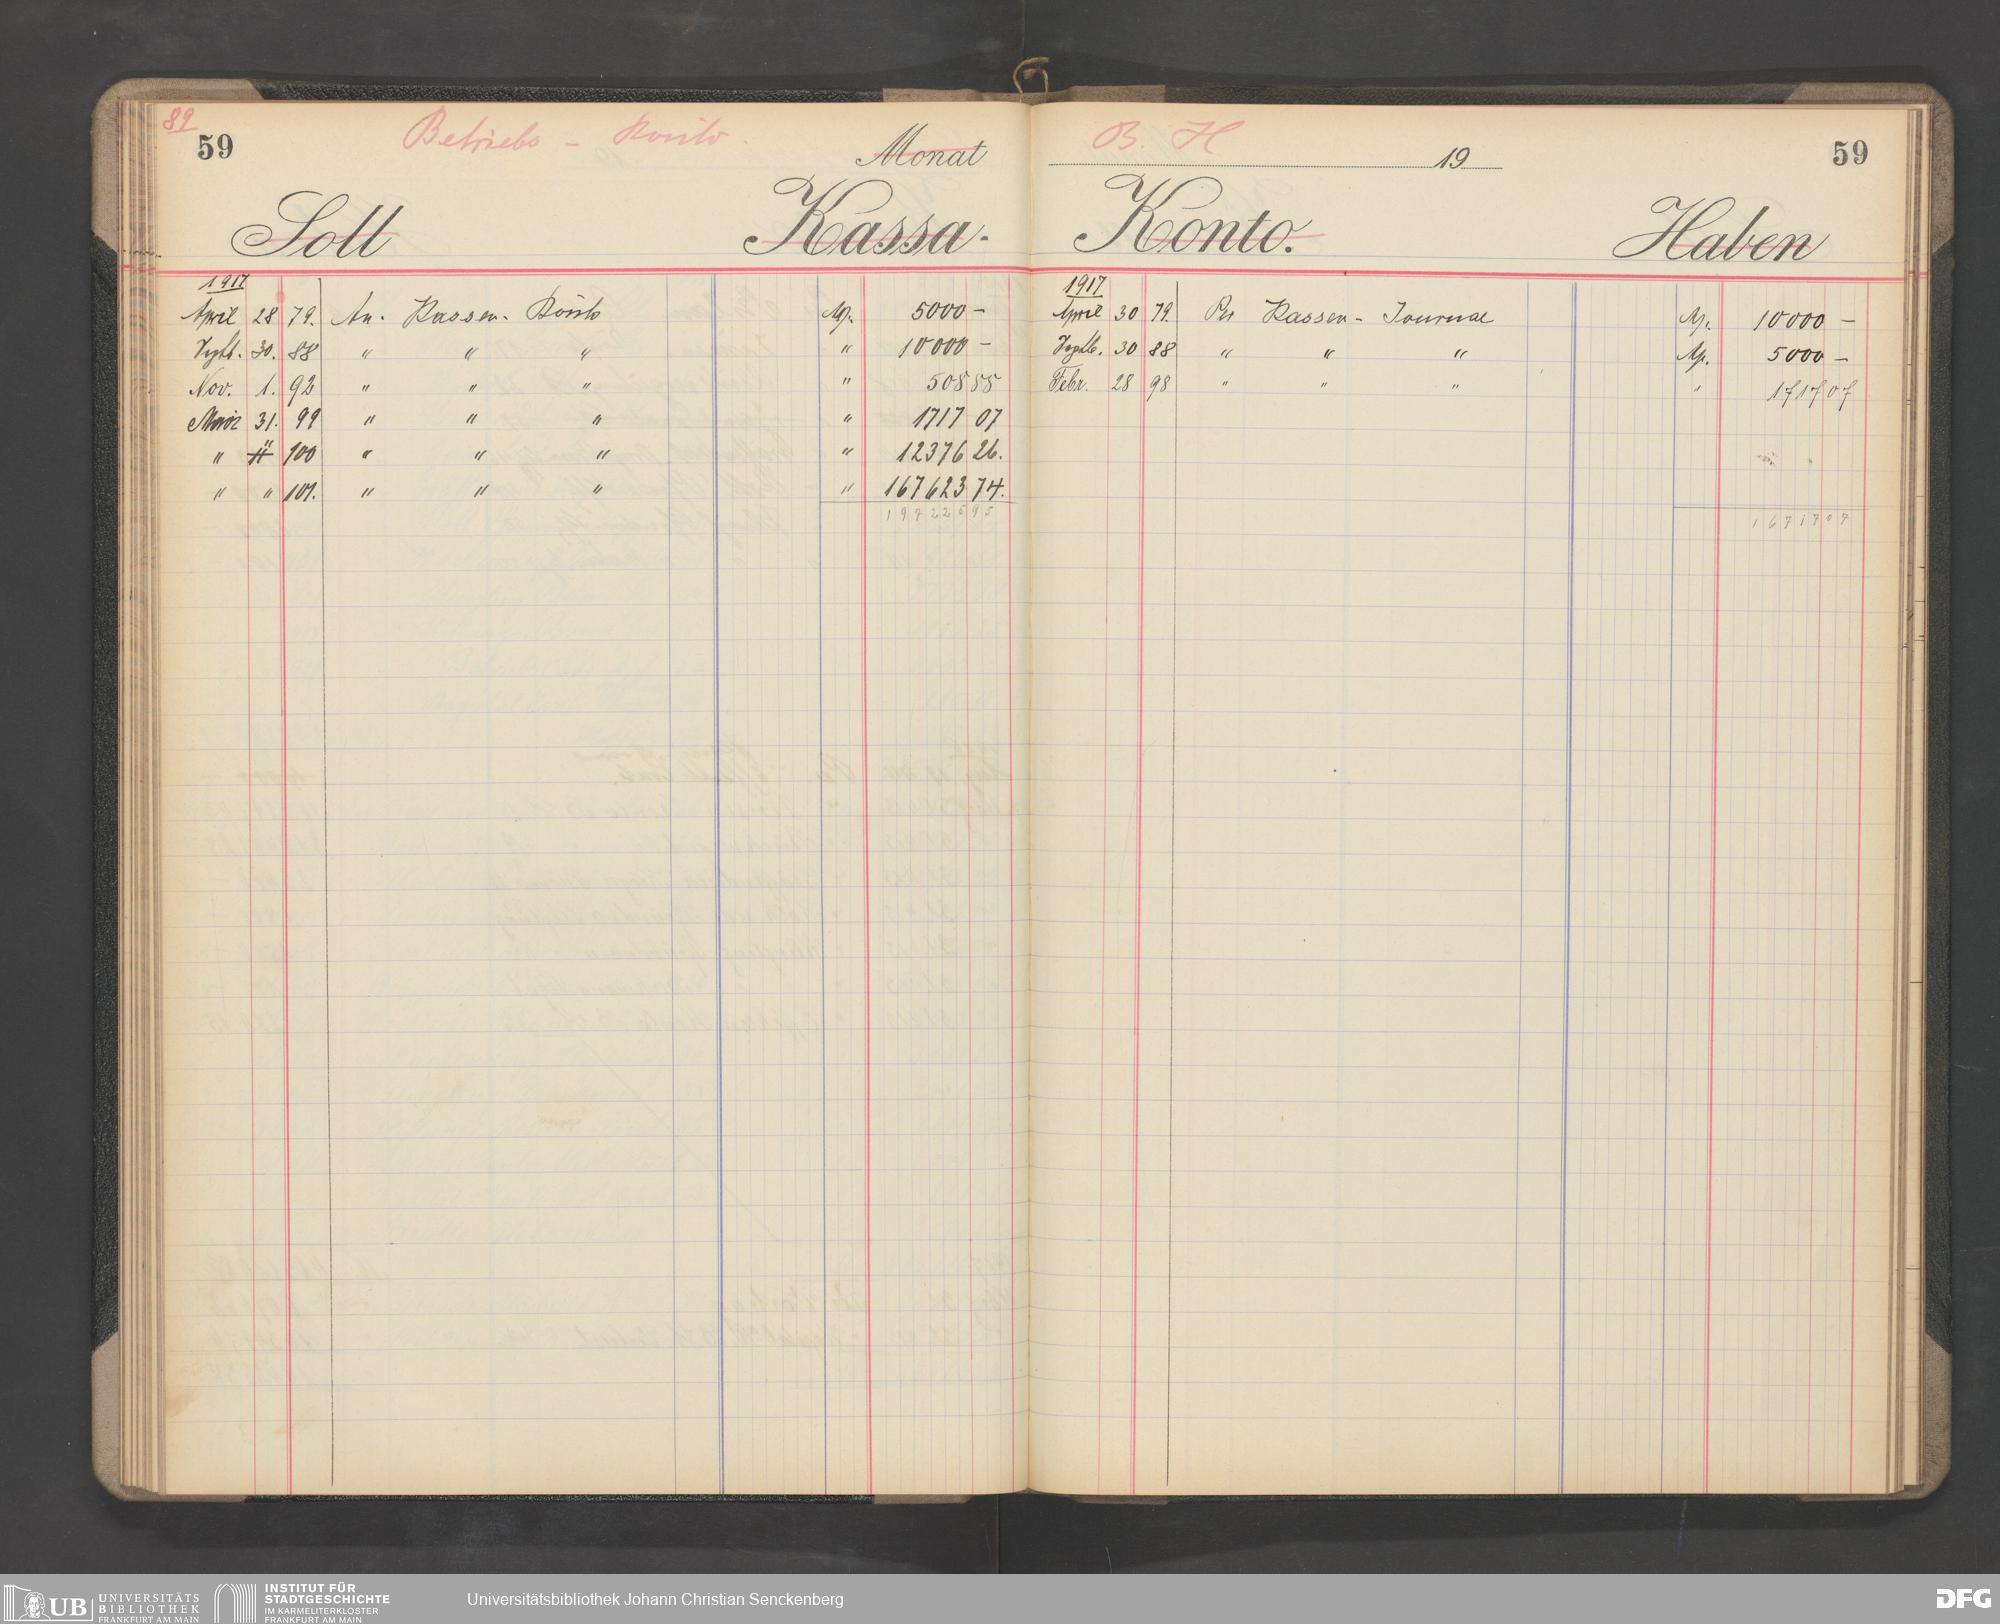 89
59
Betriebs - Konto.
Monat
B. H
19
59
Soll
Kassa-
Konto.
Haben
1917
April 28 79. An Kassen- Konto M. 5000 -
Septb. 30. 88 " " " " 10000 -
Nov. 1. 92 " " " " 508 55
März 31. 99 " " " " 1717 07
" " 100 " " " " 12376 26.
" " 101. " " " " 167623 74.
19722695
1917
April 30 79. Per Kassen - Journal M. 10000 -
Septb. 30 88 " " " M. 5000 -
Febr. 28 98 " " " " 1717 07
1671707
UB UNIVERSITÄTS
BIBLIOTHEK
FRANKFURT AM MAIN
INSTITUT FÜR
STADTGESCHICHTE
IM KARMELITERKLOSTER
FRANKFURT AM MAIN
Universitätsbibliothek Johann Christian Senckenberg
DFG